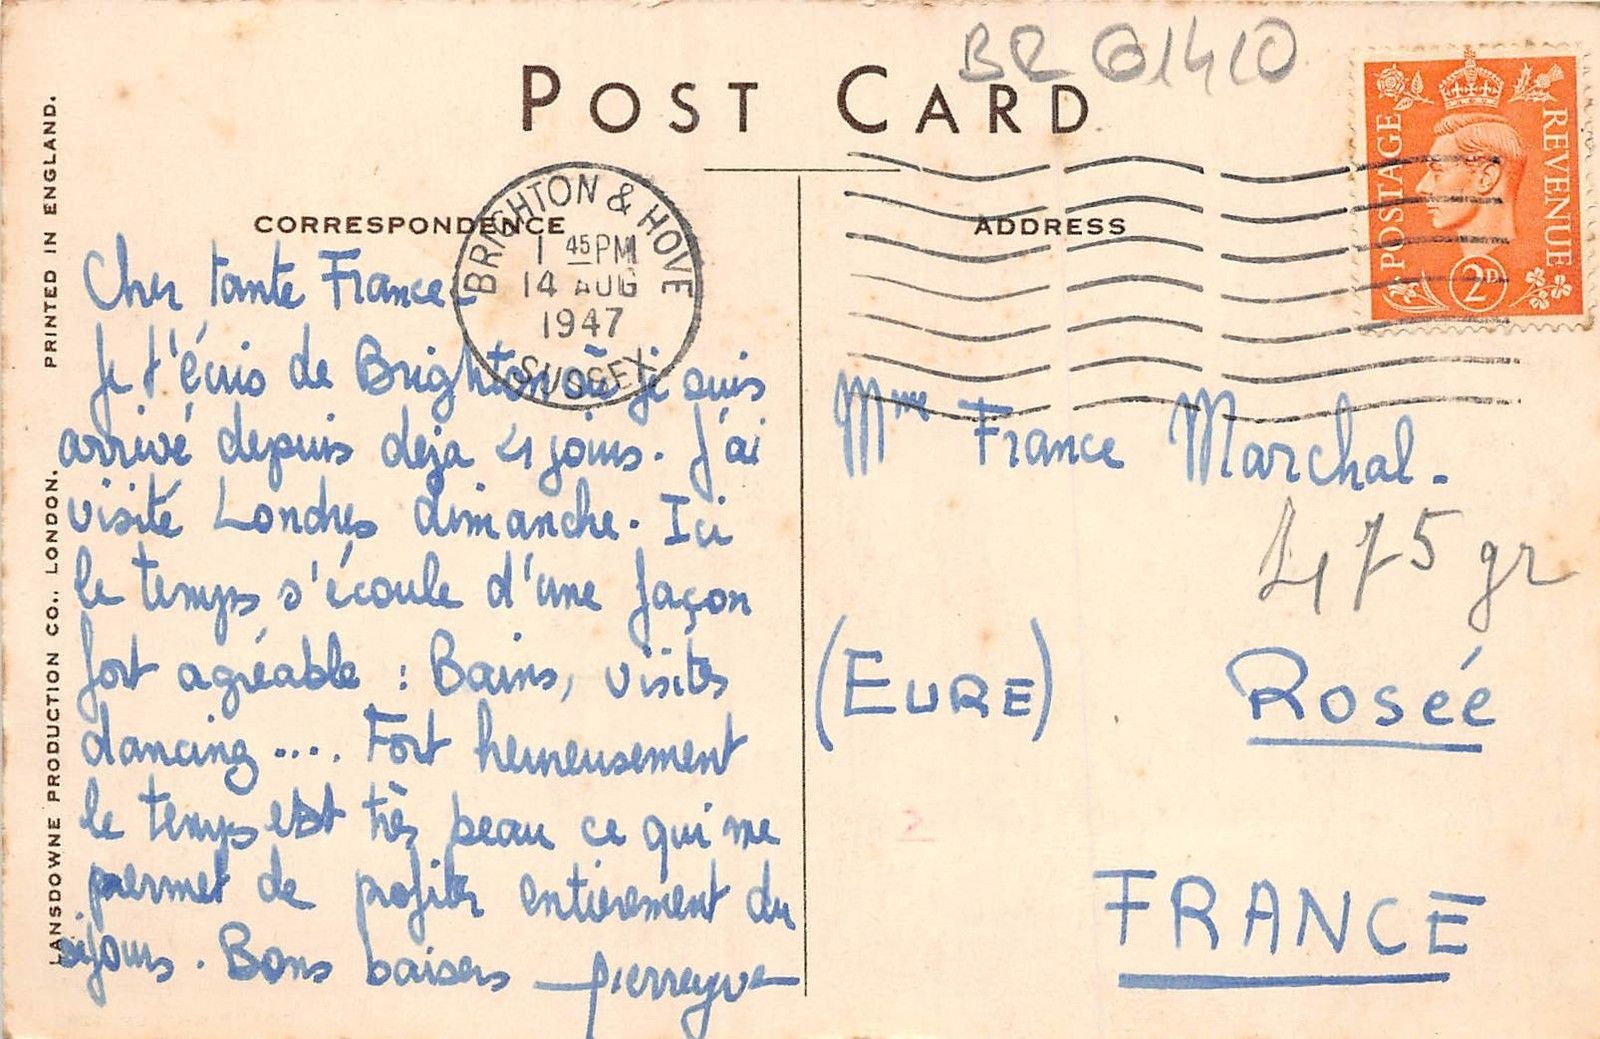 POST CARD
BR G1410
CORRESPONDENCE
ADDRESS
BRIGHTON & HOVE
1 45 PM
14 AUG
1947
SUSSEX
POSTAGE
REVENUE
2D
PRINTED IN ENGLAND.
LANSDOWNE PRODUCTION CO., LONDON.
Cher tante France.
Je t'écris de Brighton où je suis
arrivé depuis deja 4 jours. J'ai
visité Londres dimanche. Ici
le temps s'écoule d'une façon
fort agréable : Bains, visites
dancing .... Fort heureusement
le temps est très beau ce qui me
permet de profiter entièrement du
séjours. Bons baisers — pierreyve
Mme France Marchal.
475 gr
(EURE) ROSÉE
FRANCE